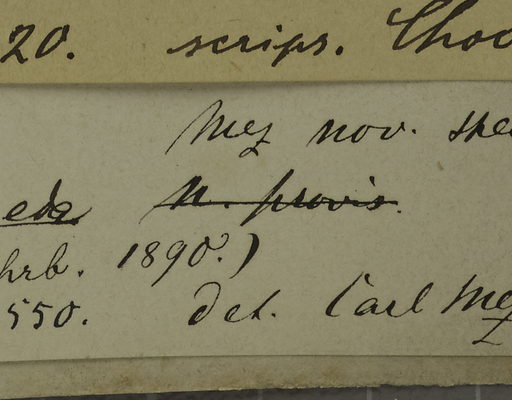 20. scrips. Choc
Mez nov. spe
eda n. provis.
hrb. 1890.)
550. det. Carl Mez